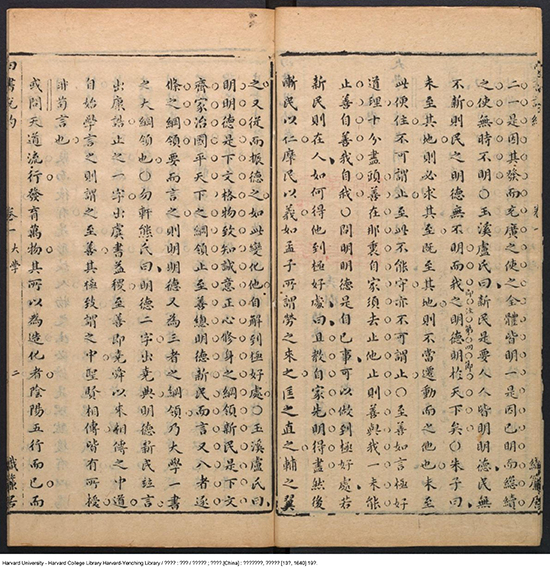 二一是因其發而充廣之使之全體皆明一是因已明而繼續
之使無時不明○玉溪盧氏曰新民是要人人皆明明德民無
不新則民之明德無不明而我之明德明於天下矣○朱子曰
未至其地則必求其至既至其地則不當遷動而之他也未至
此便住不可謂止至此不能守亦不可謂止○至善如言極好
道理十分盡頭善在那裏自家須去止他止則善與我一未能
止善自善我自我○問明明德是自己事可以做到極好處若
新民則在人如何得他到極好處曰且教自家先明得盡然後
漸民以仁摩民以義如孟子所謂勞之來之匡之直之輔之翼
之又從而振德之如此變化他自解到極好處○玉溪盧氏曰
明明德是下文格物致知誠意正心修身之綱領新民是下文
齊家治國平天下之綱領止至善總明德新民而言又八者逐
條之綱領要而言之則明明德又為三者之綱領乃大學一書
之大綱領也○勿軒熊氏曰明德二字出堯典明德新民竝言
出康誥止之一字出虞書益稷至善即堯舜以來相傳之中道
自始學言之則謂之至善其極致謂之中聖賢相傳皆有所授
非苟言也
或問天道流行發育萬物其所以為造化者陰陽五行而已而
四書說約 卷一大學 二 織簾居
Harvard University - Harvard College Library Harvard-Yenching Library / ???? : ??? / ????? ; ???? [China] : ???????, ????? [13?, 1640] 19?